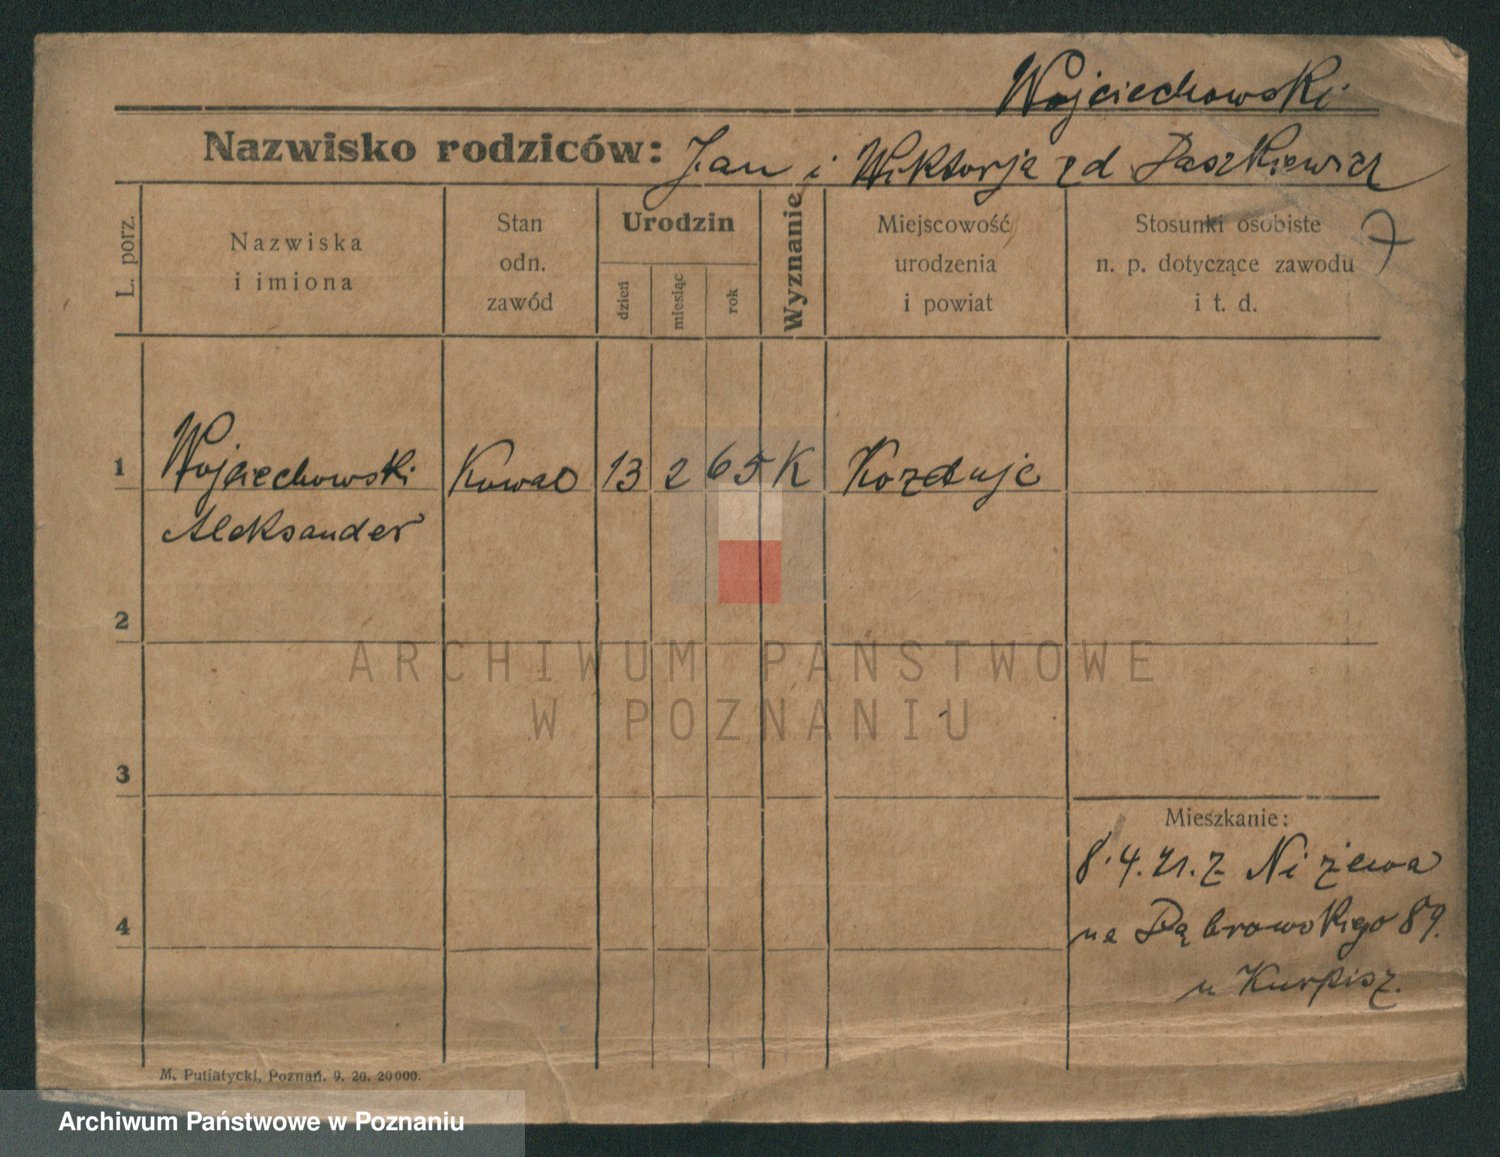 Wojciechowski
Nazwisko rodziców: Jan i Wiktorja z d Daszkiewicz
L. porz.
Nazwiska
i imiona
Stan
odn.
zawód
Urodzin
dzień
miesiąc
rok
Wyznanie
Miejscowość
urodzenia
i powiat
Stosunki osobiste
n. p. dotyczące zawodu
i t. d.
1
Wojciechowski
Aleksander
Kowal
13
2
65
K
2
3
4
ARCHIWUM PAŃSTWOWE
W POZNANIU
Mieszkanie:
8.4.21. z Niżewa
na Dąbrowskiego 89.
u Kurpisz.
M. Putiatycki, Poznań. 9. 20. 20000.
Archiwum Państwowe w Poznaniu